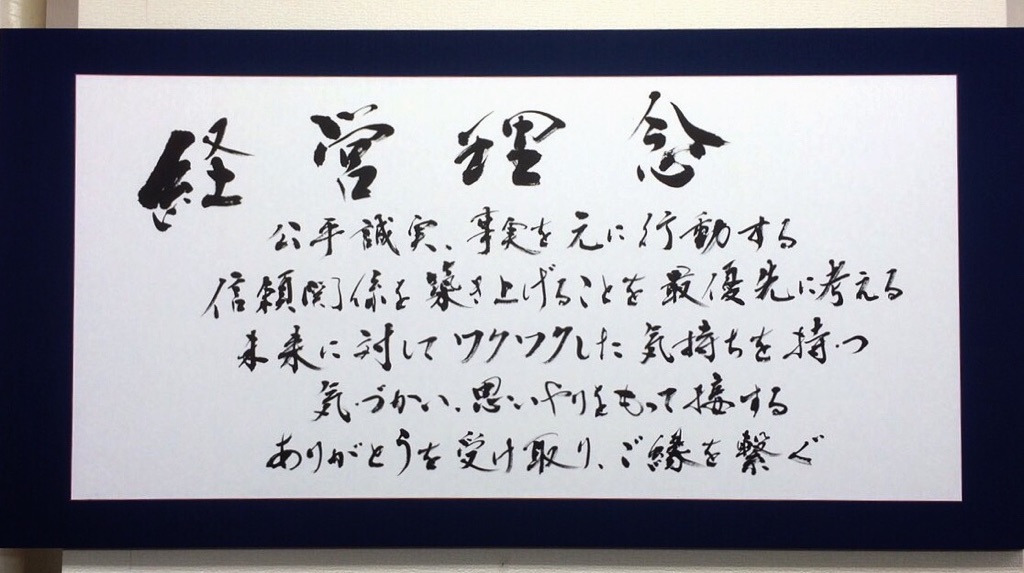 経営理念
公平誠実、事実を元に行動する
信頼関係を築き上げることを最優先に考える
未来に対してワクワクした気持ちを持つ
気づかい、思いやりをもって接する
ありがとうを受け取り、ご縁を繋ぐ